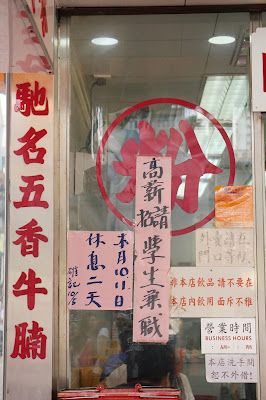 馳名五香牛腩
粉
高薪招請學生兼職
本月10,11日
休息二天
外賣請在
門口等候
非本店飲品 請不要在
本店內飲用 面斥不雅
營業時間
BUSINESS HOURS
本店洗手間
恕不外借!